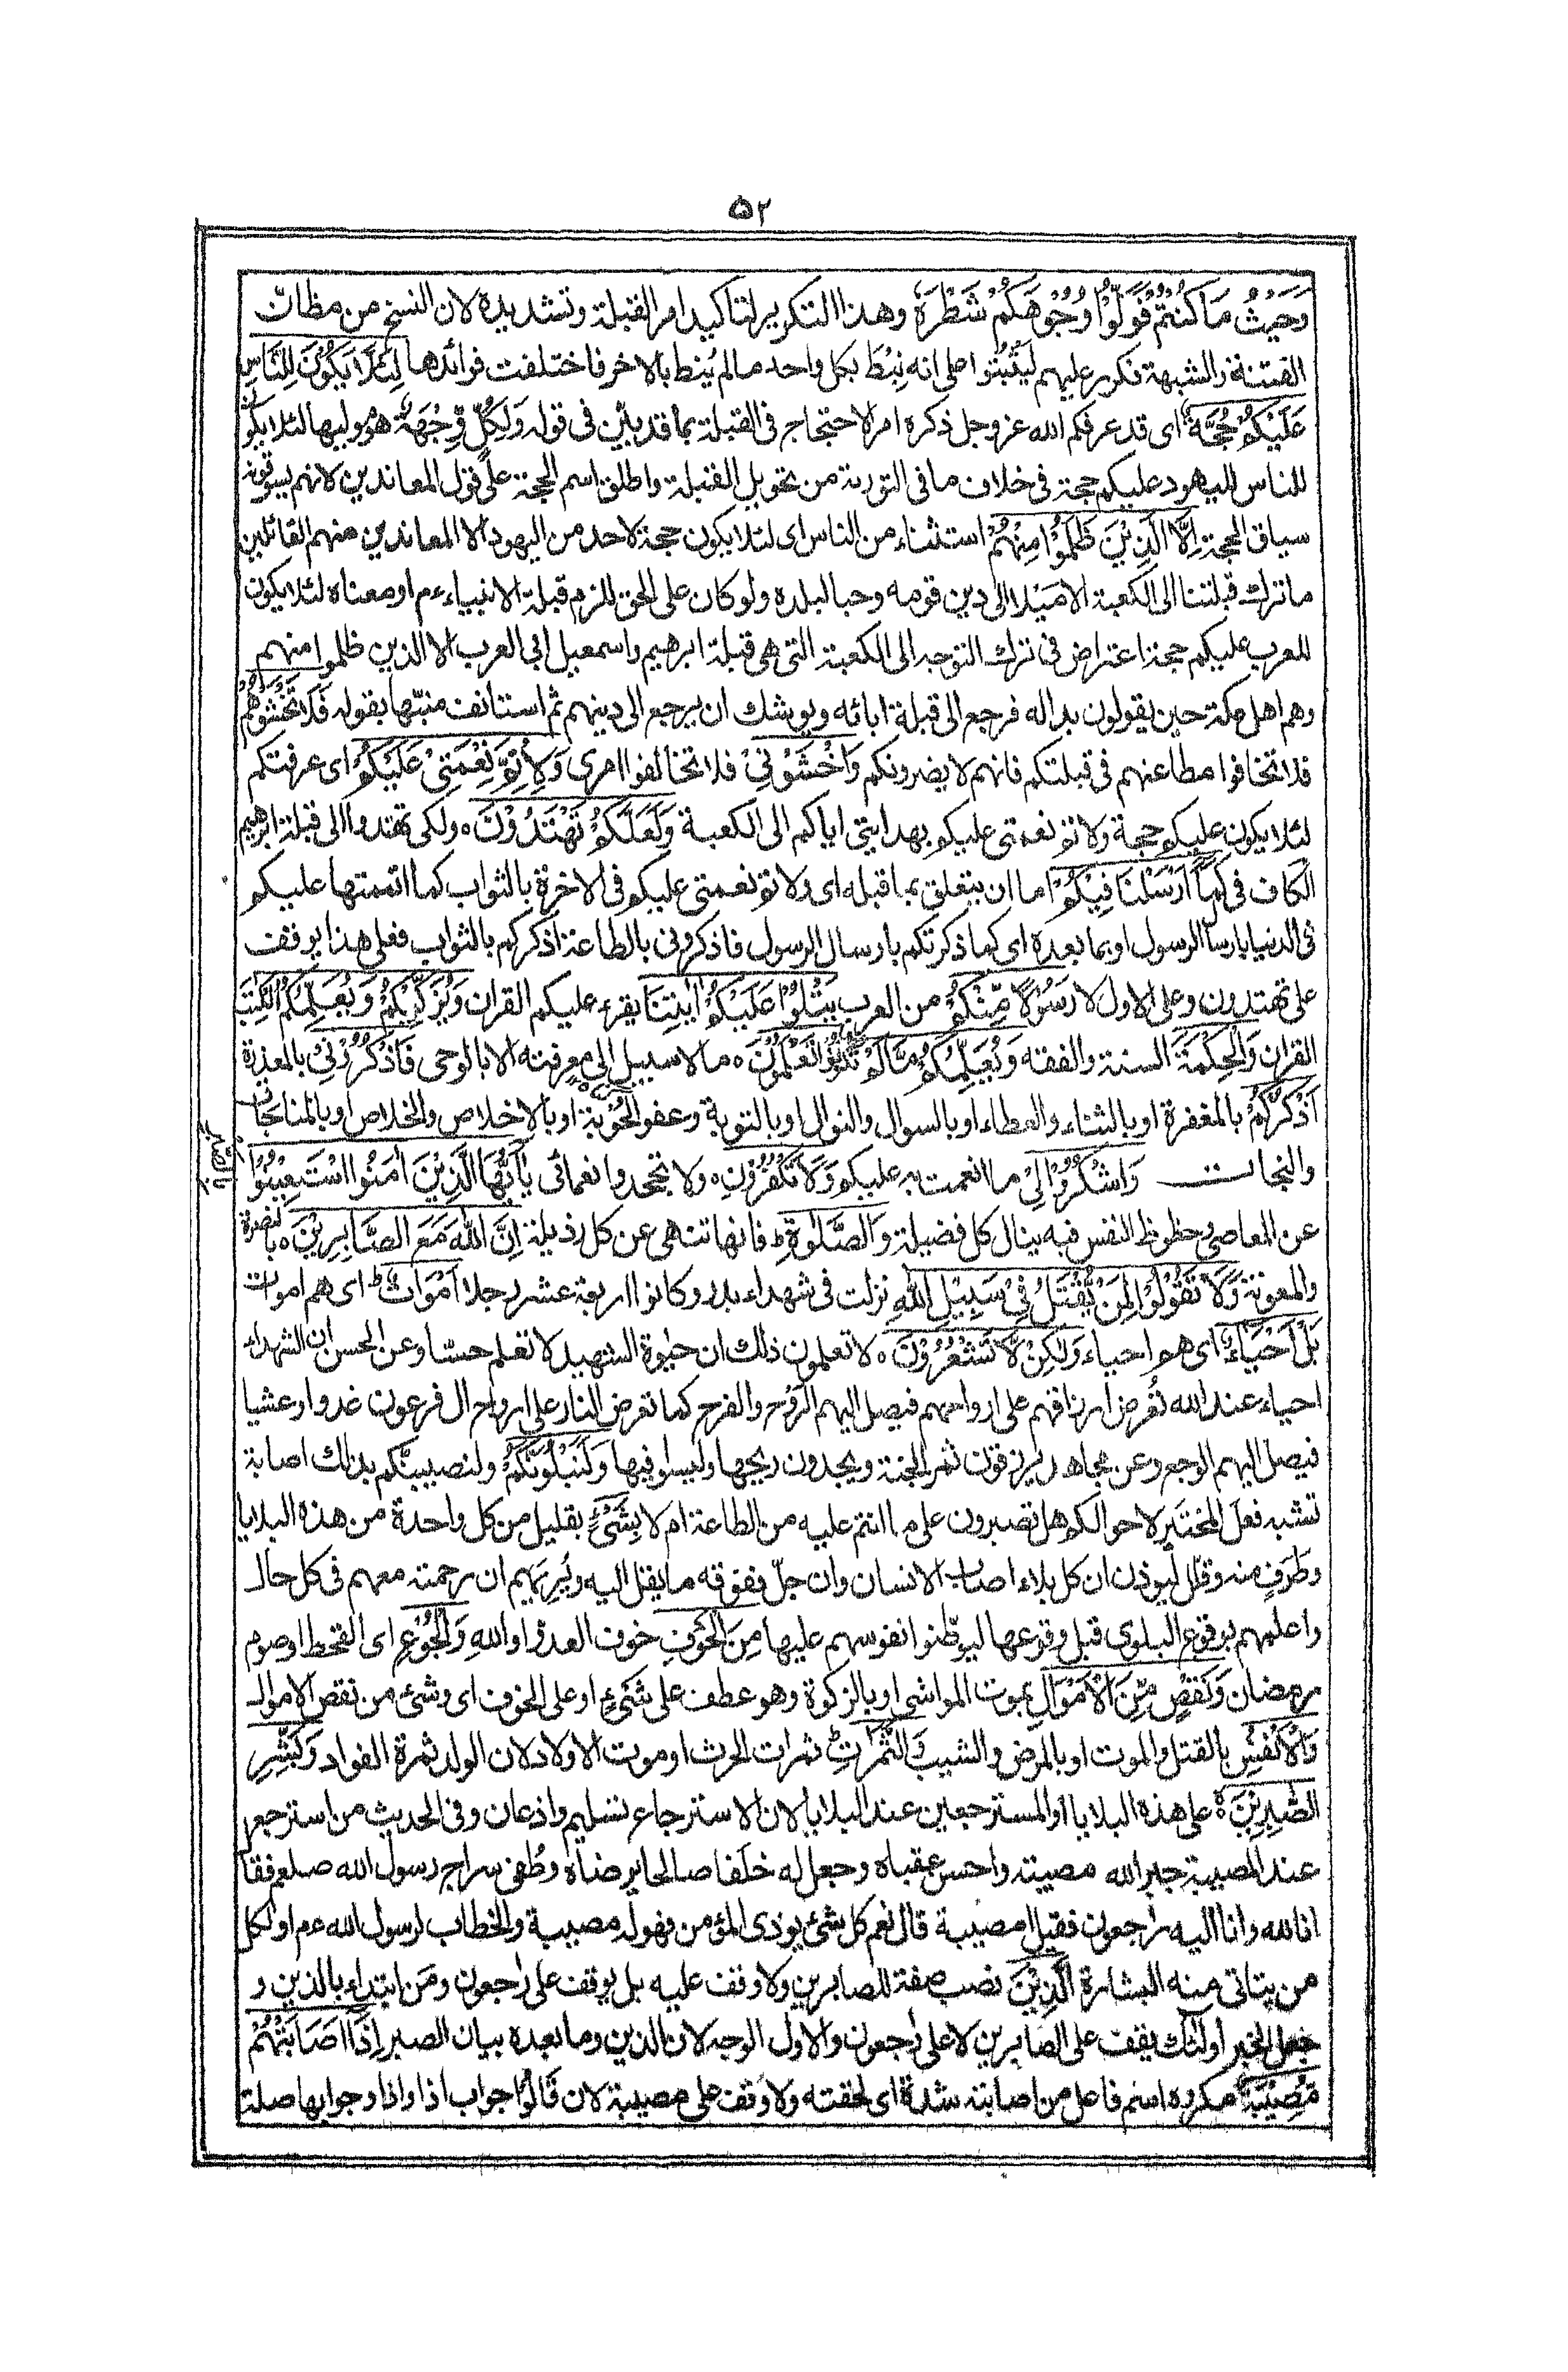 ۵۲
وَحَيْثُ مَا كُنْتُمْ فَوَلُّوْا وُجُوْهَكُمْ شَطْرَهٗ وهذا التكرير لتاكيد امر القبلة وتشديده لان النسخ من مظانّ
الفتنة والشبهة فكرر عليهم ليَثْبُتُوا على انه نِيْطَ بكل واحد مالم يُنط بالاخر فاختلفت فوائدها لِئَلَّا يَكُوْنَ لِلنَّاسِ
عَلَيْكُمْ حُجَّةٌ اى قد عرفكم الله عز وجل ذكره امر الاحتجاج فى القبلة بما قد بيّن فى قوله وَلِكُلٍّ وِّجْهَةٌ هو موليها لئلا يكون
للناس لليهود عليكم حجة فى خلاف ما فى التورىة من تحويل القبلة واطلق اسم الحجة على قول المعاندين لانهم يسوقونه
سياق الحجة اِلَّا الَّذِيْنَ ظَلَمُوْا مِنْهُمْ استثناء من الناس اى لئلا يكون حجة لاحد من اليهود الا المعاندين منهم القائلين
ما ترك قبلتنا الى الكعبة الا ميلا الى دين قومه وحبا لبلده ولو كان على الحق للزم قبلة الانبياء ءم او معناه لئلا يكون
للعرب عليكم حجة اعتراض فى ترك التوجه الى الكعبة التى هى قبلة ابرهيم واسمعيل ابى العرب الا الذين ظلموا منهم
وهم اهل مكة حين يقولون بدا له فرجع الى قبلة ابائه ويوشك ان يرجع الى دينهم ثم استانف منبّها بقوله فَلَا تَخْشَوْهُمْ
فلا تخافوا مطاعنهم فى قبلتكم فانهم لا يضرونكم وَاخْشَوْنِيْ فلا تخالفوا امرى وَلِاُتِمَّ نِعْمَتِيْ عَلَيْكُمْ اى عرفتكم
لئلا يكون عليكم حجة ولاتم نعمتى عليكم بهدايتى اياكم الى الكعبة وَلَعَلَّكُمْ تَهْتَدُوْنَ ه ولكى تهتدوا الى قبلة ابرهيم
الكاف فى كَمَا اَرْسَلْنَا فِيْكُمْ اما ان يتعلق بما قبله اى ولاتم نعمتى عليكم فى الاخرة بالثواب كما اتممتها عليكم
فى الدنيا بارسال الرسول او بما بعده اى كما ذكرتكم بارسال الرسول فاذكرونى بالطاعة اذكركم بالثواب فعلى هذا يوقف
على تهتدون وعلى الاول لا رَسُوْلًا مِّنْكُمْ من العرب يَتْلُوْا عَلَيْكُمْ اٰيٰتِنَا يقرء عليكم القران وَيُزَكِّيْكُمْ وَيُعَلِّمُكُمُ الْكِتٰبَ
القران وَالْحِكْمَةَ السنة والفقه وَيُعَلِّمُكُمْ مَّا لَمْ تَكُوْنُوْا تَعْلَمُوْنَ ه ما لا سبيل الى معرفته الا بالوحى فَاذْكُرُوْنِيْ بالمعذرة
اَذْكُرْكُمْ بالمغفرة او بالثناء والعطاء او بالسوال والنوال او بالتوبة وعفو الحُوْبة او بالاخلاص والخلاص او بالمناجات
والنجات وَاشْكُرُوْا لِيْ ما انعمت به عليكم وَلَا تَكْفُرُوْنِ ه ولا تجحدوا نعمائى يٰاَيُّهَا الَّذِيْنَ اٰمَنُوا اسْتَعِيْنُوْا
بالصَّبر
عن المعاصى وحظوظ النفس فبه ينال كل فضيلة وَالصَّلٰوةِ ط فانها تنهى عن كل رذيلة اِنَّ اللهَ مَعَ الصَّابِرِيْنَ ه بالنصرة
والمعونة وَلَا تَقُوْلُوْا لِمَنْ يُّقْتَلُ فِيْ سَبِيْلِ اللهِ نزلت فى شهداء بدر وكانوا اربعة عشر رجلا اَمْوَاتٌ ط اى هم اموات
بَلْ اَحْيَاءٌ اى هم احياء وَلٰكِنْ لَّا تَشْعُرُوْنَ ه لا تعلمون ذلك ان حيٰوة الشهيد لا تعلم حسّا وعن الحسن ان الشهداء
احياء عند الله تُعرض ارزاقهم على ارواحهم فيصل اليهم الرَّوح والفرح كما تعرض النار على ارواح ال فرعون غدوا وعشيا
فيصل اليهم الوجع وعن مجاهد يُرزقون ثمر الجنة ويجدون ريحها وليسوا فيها وَلَنَبْلُوَنَّكُمْ ولنصيبنّكم بذلك اصابة
تشبه فعلَ المختبِر لاحوالكم هل تصبرون على ما انتم عليه من الطاعة ام لا بِشَيْءٍ بقليل من كل واحدة من هذه البلايا
وطَرَفٍ منه وقلّل ليوذن ان كل بلاء اصاب الانسان وان جلّ ففوقه ما يقل اليه ويُرِيَهم ان رحمته معهم فى كل حال
واعلمهم بوقوع البلوى قبل وقوعها ليوطّنوا نفوسهم عليها مِنَ الْخَوْفِ خوف العدوّ او اللهِ وَالْجُوْعِ اى القحط او صوم
رمضان وَنَقْصٍ مِّنَ الْاَمْوَالِ بموت المواشى او بالزكوة وهو عطف على شَيْءٍ او على الخوف اى وشئ من نقص الاموال
وَالْاَنْفُسِ بالقتل والموت او بالمرض والشيب وَالثَّمَرٰتِ ط ثمرات الحرث او موت الاولاد لان الولد ثمرة الفواد وَبَشِّرِ
الصّٰبِرِيْنَ ۙ على هذه البلايا او المسترجعين عند البلايا لان الاسترجاع تسليم واذعان وفى الحديث من استرجع
عند المصيبة جبر الله مصيبته واحسن عقباه وجعل له خلَفا صالحا يرضاه وطُفئ سراج رسول الله صلعم فقال
انا لله وانا اليه راجعون فقيل امصيبة قال نعم كل شئ يوذى المؤمن فهو له مصيبة والخطاب لرسول الله ءم او لكل
من يتاتى منه البشارة اَلَّذِيْنَ نصب صفة للصابرين ولا وقف عليه بل يوقف على راجعون ومَن ابتداء بالذين و
جعل الخبر اولئك يقف على الصابرين لا على راجعون والاول الوجه لان الذين وما بعده بيان الصبر اِذَا اَصَابَتْهُمْ
مُصِيْبَةٌ مكروه اسم فاعل من اصابته شدة اى لحقته ولا وقف على مصيبة لان قَالُوْا جواب اذا واذا وجوابها صلة